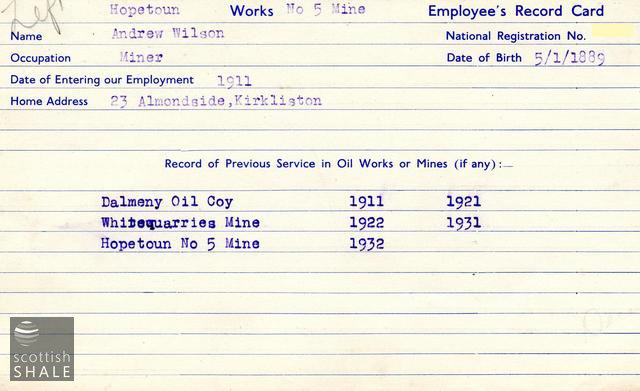 Left
Hopetoun Works No 5 Mine Employee's Record Card
Name Andrew Wilson National Registration No.
Occupation Miner Date of Birth 5/1/1889
Date of Entering our Employment 1911
Home Address 23 Almondside,Kirkliston
Record of Previous Service in Oil Works or Mines (if any):—
Dalmeny Oil Coy 1911 1921
Whitequarries Mine 1922 1931
Hopetoun No 5 Mine 1932
scottish
SHALE